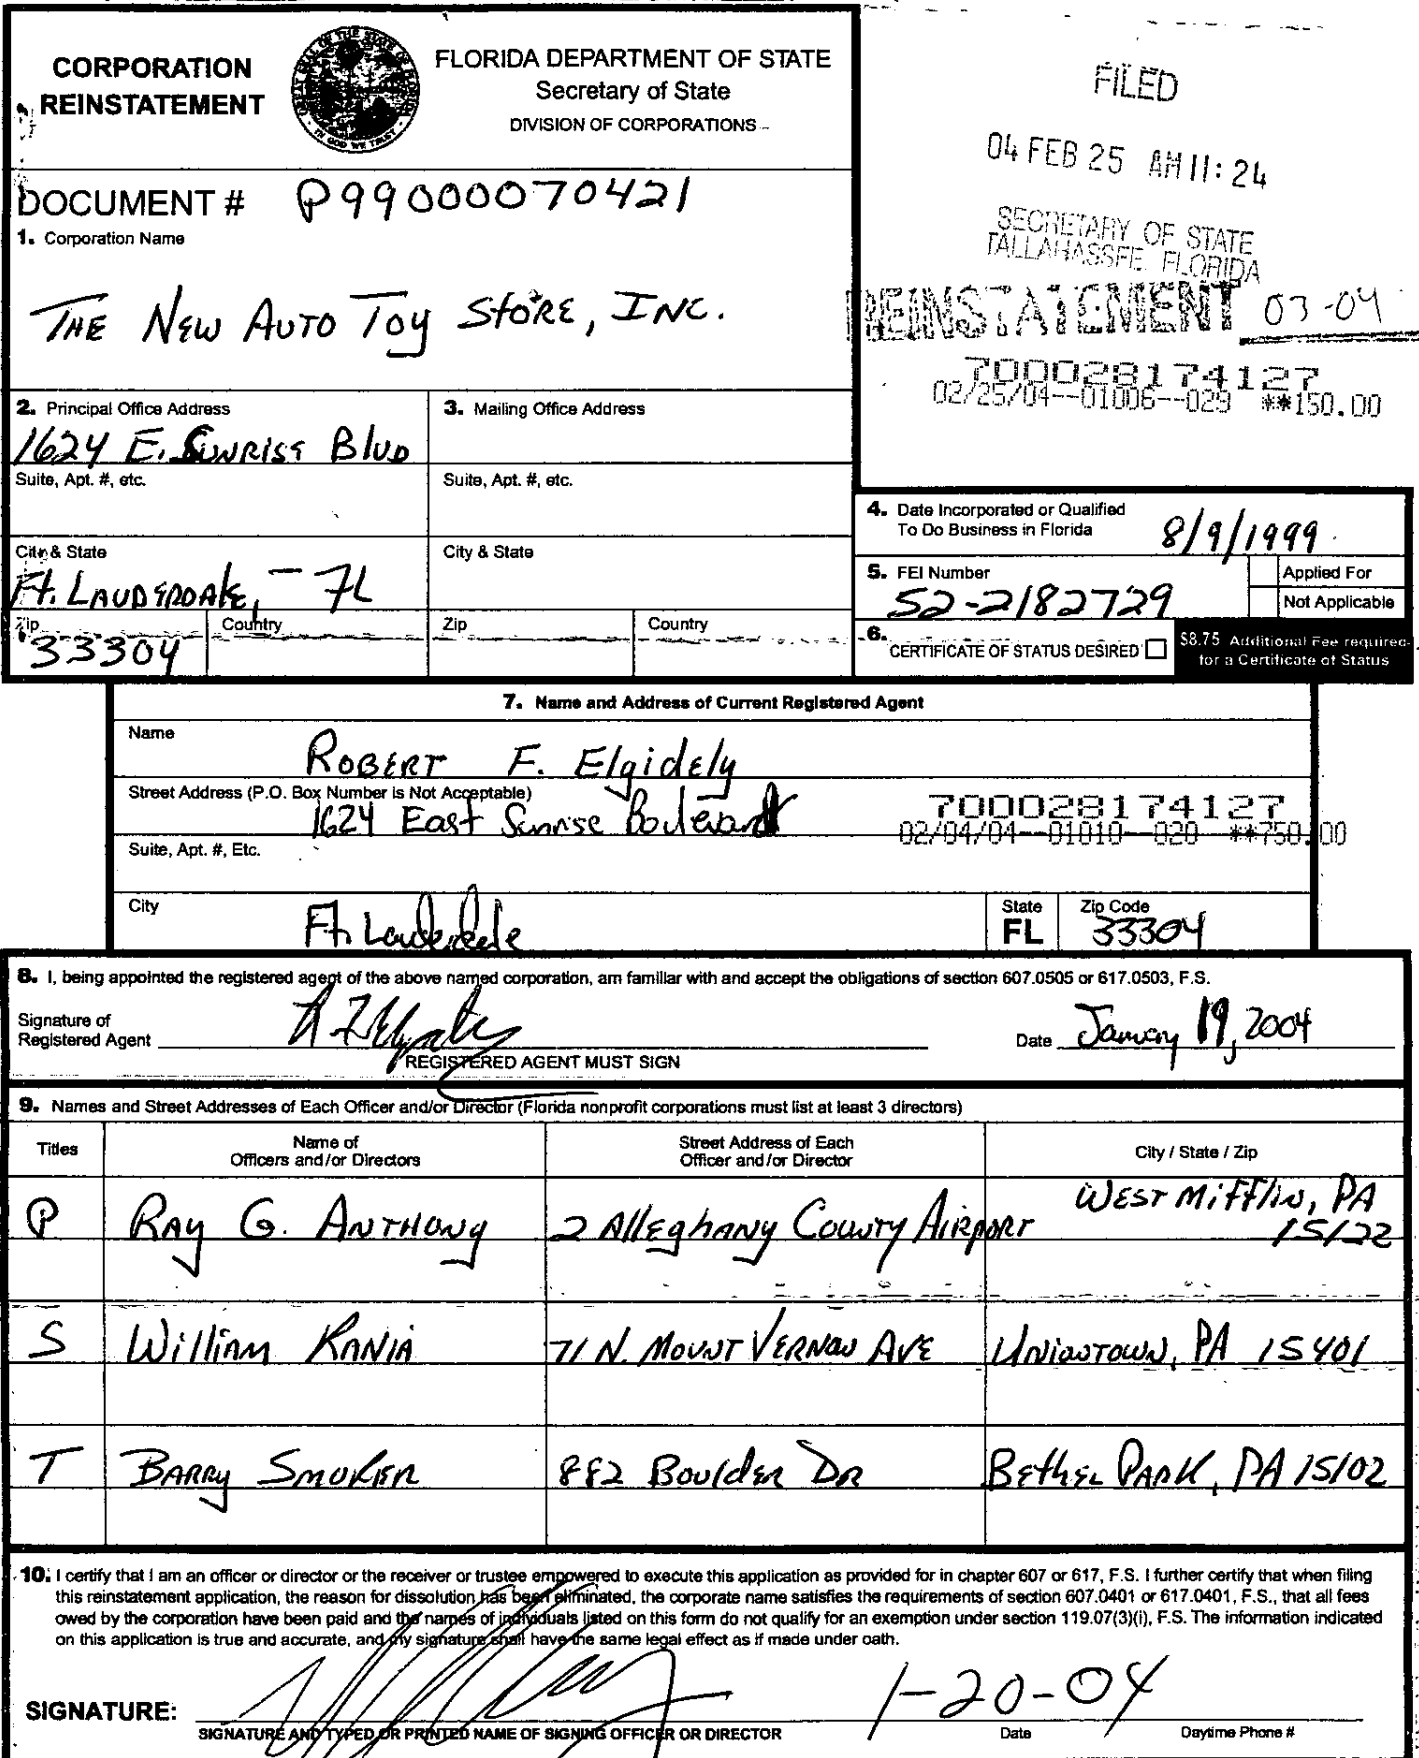 CORPORATION
REINSTATEMENT
FLORIDA DEPARTMENT OF STATE
Secretary of State
DIVISION OF CORPORATIONS
FILED
04 FEB 25 AM 11:24
SECRETARY OF STATE
TALLAHASSEE FLORIDA
REINSTATEMENT 03-04
700028174127
02/25/04--01006--029 **150.00
DOCUMENT # P99000070421
1. Corporation Name
THE NEW AUTO TOY STORE, INC.
2. Principal Office Address
1624 E. SUNRISE BLVD
3. Mailing Office Address
Suite, Apt. #, etc.
Suite, Apt. #, etc.
City & State
Ft. LAUDERDALE, - FL
City & State
Zip
33304
Country
Zip
Country
4. Date Incorporated or Qualified
To Do Business in Florida 8/9/1999
5. FEI Number
52-2182729
Applied For
Not Applicable
6. CERTIFICATE OF STATUS DESIRED
$8.75 Additional Fee required
for a Certificate of Status
7. Name and Address of Current Registered Agent
Name
ROBERT F. Elgidely
Street Address (P.O. Box Number is Not Acceptable)
1624 East Sunrise Boulevard
700028174127
02/04/04--01010--020 **750.00
Suite, Apt. #, Etc.
City
Ft. Lauderdale
State
FL
Zip Code
33304
8. I, being appointed the registered agent of the above named corporation, am familiar with and accept the obligations of section 607.0505 or 617.0503, F.S.
Signature of
Registered Agent
Date January 19, 2004
REGISTERED AGENT MUST SIGN
9. Names and Street Addresses of Each Officer and/or Director (Florida nonprofit corporations must list at least 3 directors)
Titles
Name of
Officers and/or Directors
Street Address of Each
Officer and/or Director
City / State / Zip
P RAY G. ANTHONY 2 AllEGHANY COUNTY AIRPORT WEST MIFFLIN, PA
15122
S William KANIA 71 N. MOUNT VERNON AVE UNIONTOWN, PA 15401
T BARRY SMOKER 882 BOULDER DR BETHEL PARK, PA 15102
10. I certify that I am an officer or director or the receiver or trustee empowered to execute this application as provided for in chapter 607 or 617, F.S. I further certify that when filing
this reinstatement application, the reason for dissolution has been eliminated, the corporate name satisfies the requirements of section 607.0401 or 617.0401, F.S., that all fees
owed by the corporation have been paid and the names of individuals listed on this form do not qualify for an exemption under section 119.07(3)(i), F.S. The information indicated
on this application is true and accurate, and my signature shall have the same legal effect as if made under oath.
SIGNATURE:
1-20-04
SIGNATURE AND TYPED OR PRINTED NAME OF SIGNING OFFICER OR DIRECTOR
Date
Daytime Phone #